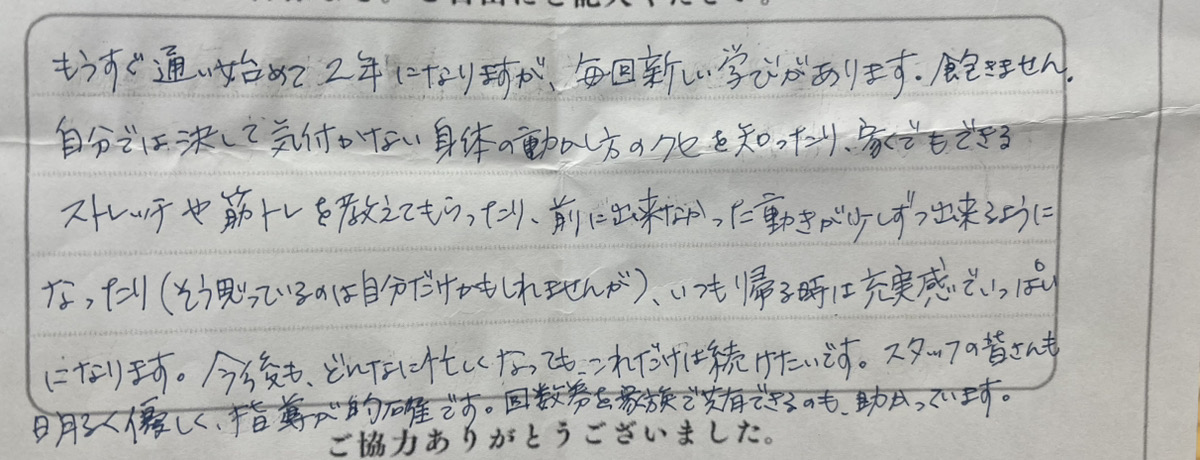 もうすぐ通い始めて2年になりますが、毎回新しい学びがあります。飽きません。
自分では決して気付かない身体の動かし方のクセを知ったり、家でもできる
ストレッチや筋トレを教えてもらったり、前に出来なかった動きが少しずつ出来るように
なったり(そう思っているのは自分だけかもしれませんが)、いつも帰る時は充実感でいっぱい
になります。今後も、どんなに忙しくなっても、これだけは続けたいです。スタッフの皆さんも
明るく優しく、指導が的確です。回数券を家族で共有できるのも、助かっています。
ご協力ありがとうございました。